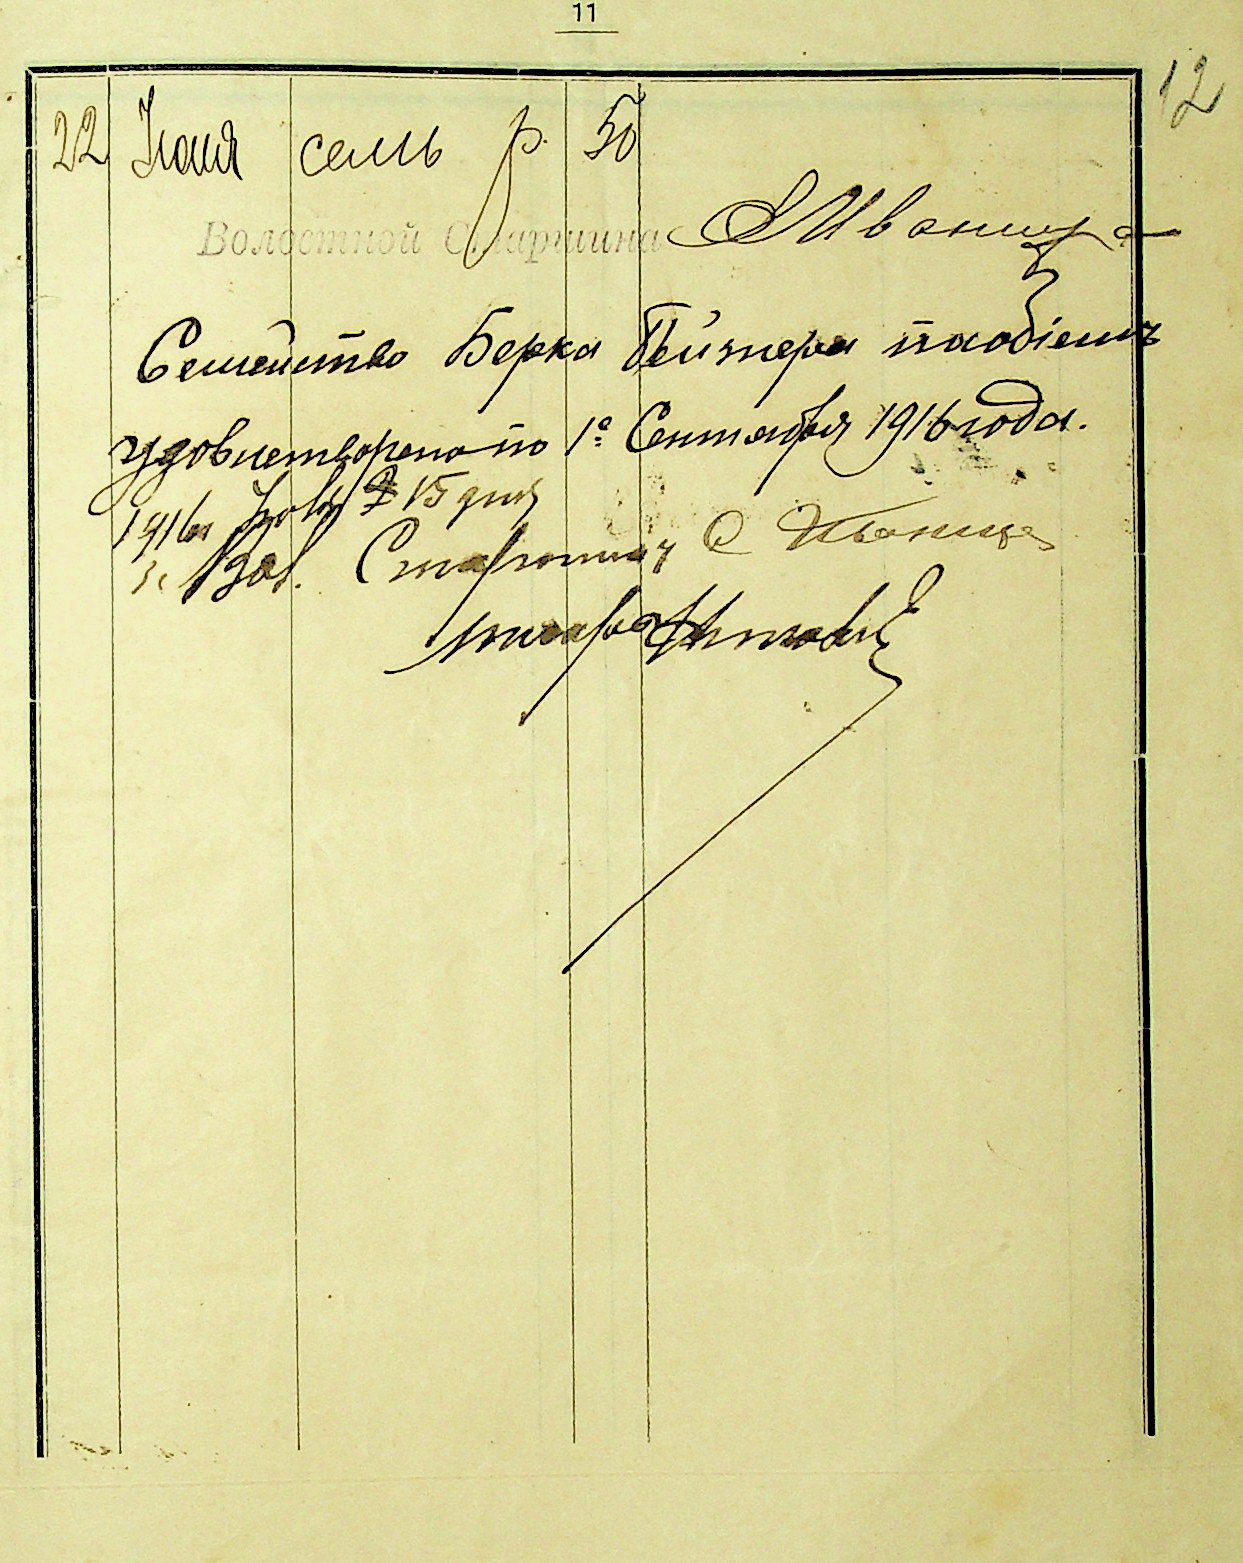 11
12
22 Июля семь р. 50
Волостной Старшина Иваница
Семейство Берка Пейзнера пособіемъ
удовлетворено по 1е Сентября 1916 года.
1916 г 15 дня
Вол. Старшина Иваница
Писарь